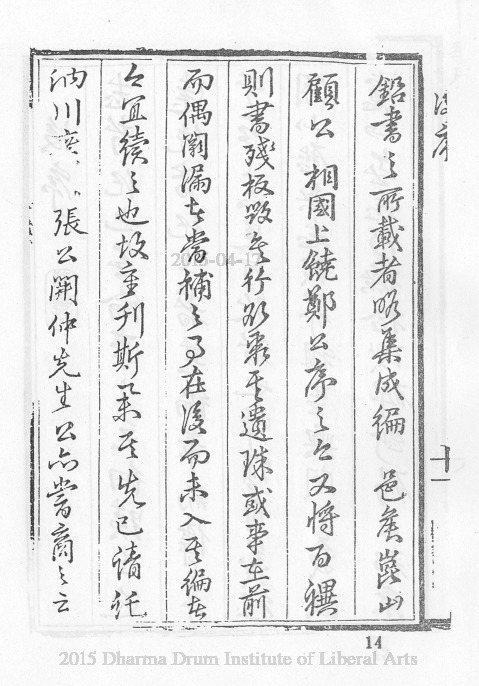 十一
鉛書之所載者略集成編 邑侯崑山
顧公 相國上饒鄭公序之今又將百禩
則書殘板毀無行欲裒其遺珠或事在前
而偶闕漏者當補之事在後而未入其編者
今宜續之也故重刊斯其先已請託
川張公開仲先生公亦嘗商之云
14
2015 Dharma Drum Institute of Liberal Arts